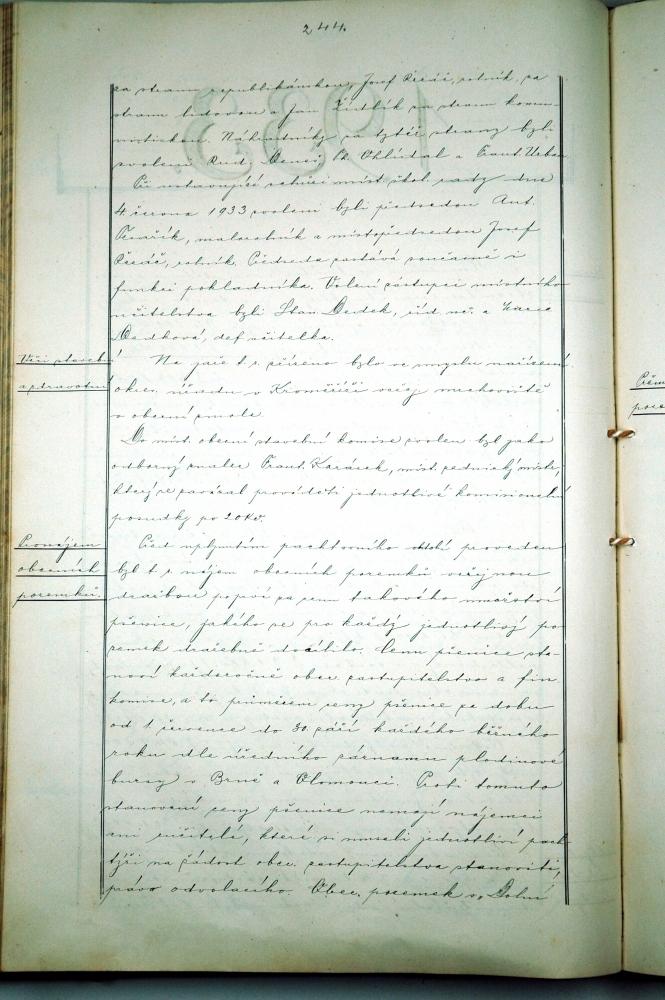 244.
za stranu republikánskou, Josef Řezáč, rolník, za
stranu lidovou a Jan Židlík za stranu komu-
nistickou. Náhradníky za tytéž strany byli
zvoleni Rud. , Ol. Ohlídal a Frant. Urban
Při ustavující schůzi míst. škol. rady dne
4. června 1933 zvoleni byli předsedou Ant.
malorolník a místopředsedou Josef
Řezáč, rolník. Předseda zastává současně i
funkci pokladníka. Voleni zástupci místního
učitelstva byli Stan. Dedek, říd. uč. a
Dedková, def. učitelka.
Věci stavební
a zdravotní
Na jaře t. r. zřízeno bylo ve smyslu nařízení
okres. úřadu v Kroměříži veřej. mrchoviště
v obecní
Do míst. obecní stavební komise zvolen byl jako
odborný znalec Frant. Karásek, míst. zednický mistr,
který se zavázal prováděti jednotlivé komisionelní
posudky po 20 Kč.
Pronájem
obecních
pozemků.
Před uplynutím pachtovního období proveden
byl t. r. nájem obecních pozemků veřejnou
dražbou poprvé za cenu takového množství
pšenice, jakého se pro každý jednotlivý po-
zemek dražebně docílilo. Cenu pšenice sta-
noví každoročně obec. zastupitelstvo a fin.
komise, a to průměrem ceny pšenice za dobu
od 1. července do 30. září každého běžného
roku dle úředního záznamu plodinové
bursy v Brně a Olomouci. Proti tomuto
stanovení ceny pšenice nemají nájemci
ani ručitelé, které si museli jednotliví pach-
týři na žádost obec. zastupitelstva stanoviti,
právo odvolacího. Obec. pozemek v „Dolní